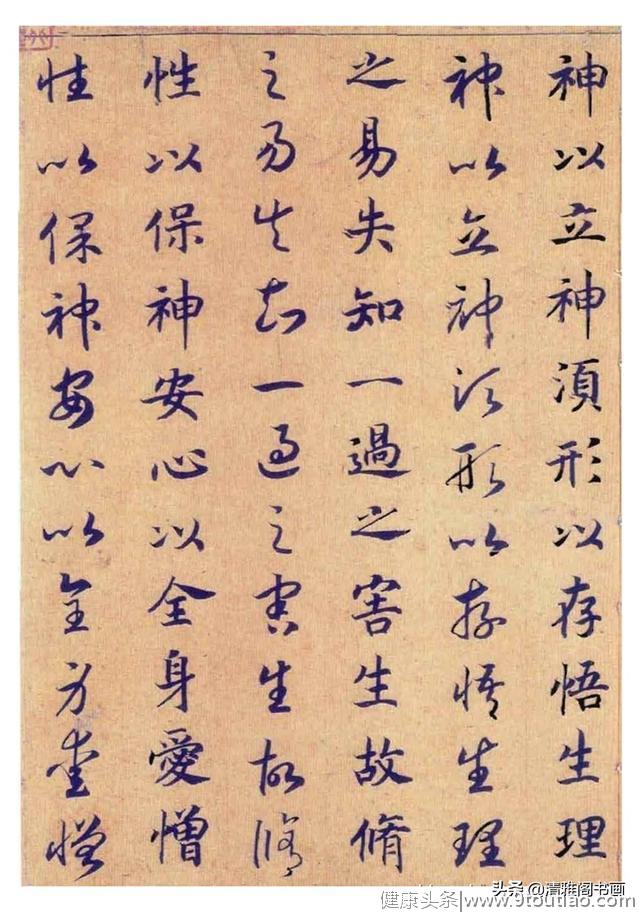 神以立神湏形以存悟生理
神以立神湏形以存悟生理
之易失知一過之害生故脩
之易失知一過之害生故脩
性以保神安心以全身愛憎
性以保神安心以全身愛憎
头条 @清雅阁书画
健康头条|www.9toutiao.com